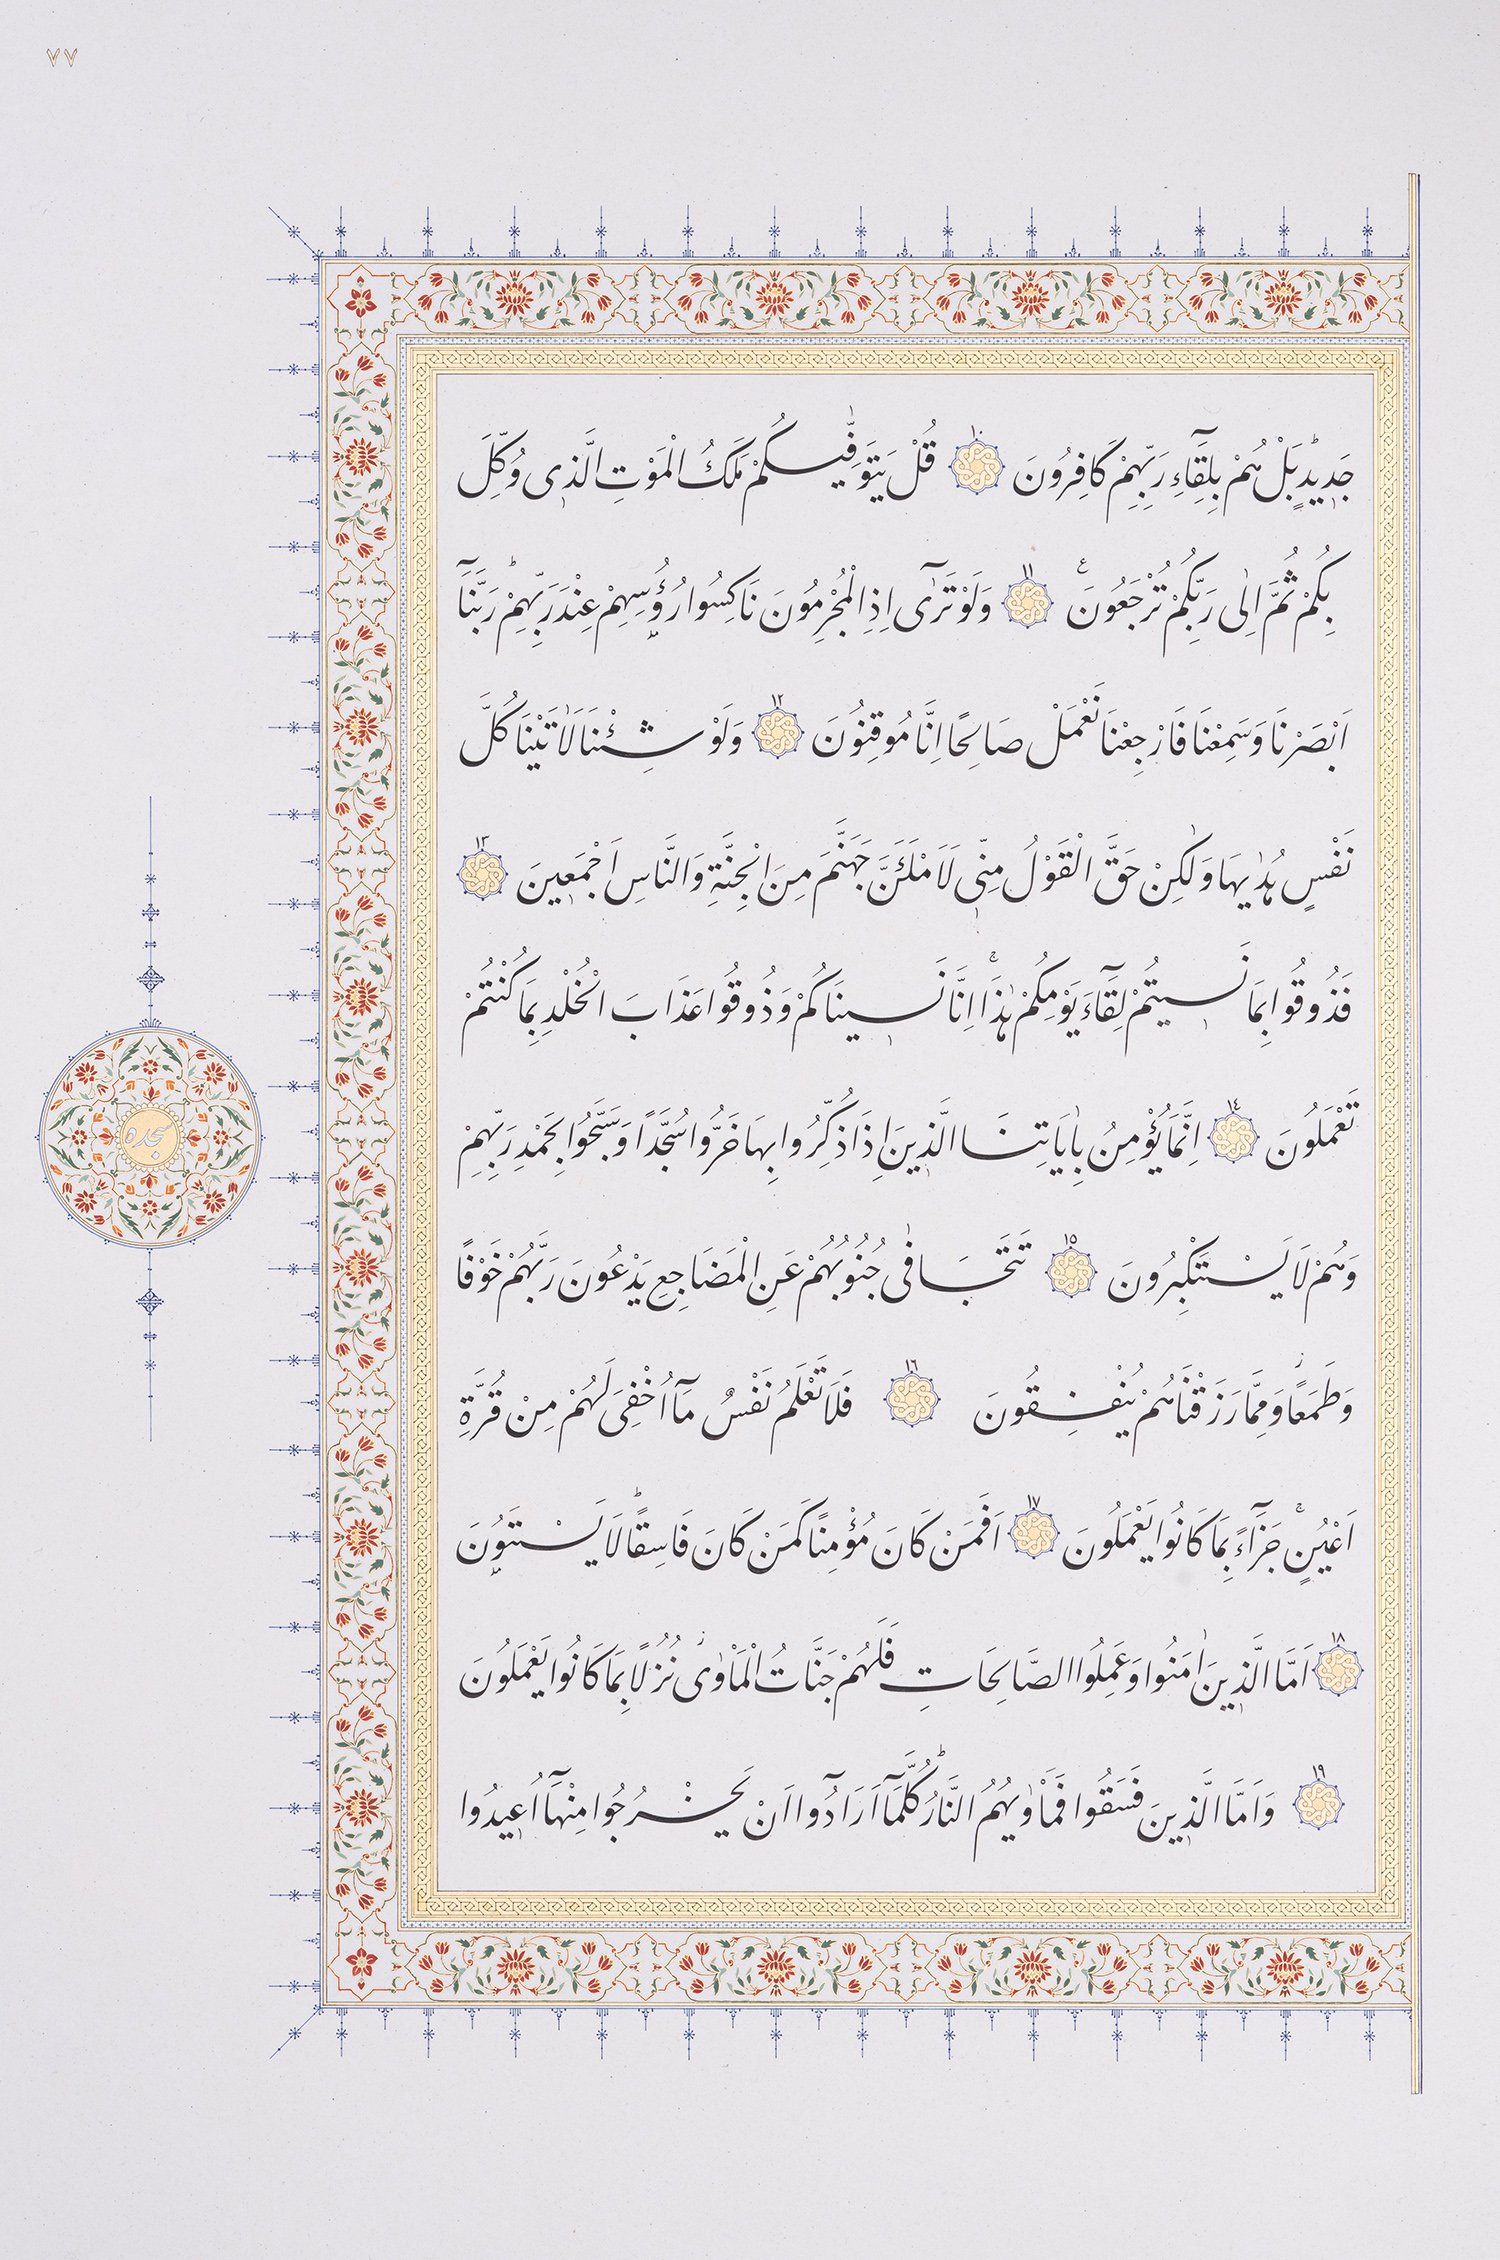 ٧٧
جَدٖيدٍ بَلْ هُمْ بِلِقَٓاءِ رَبِّهِمْ كَافِرُونَ ١٠ قُلْ يَتَوَفّٰيكُمْ مَلَكُ الْمَوْتِ الَّذٖى وُكِّلَ
بِكُمْ ثُمَّ اِلٰى رَبِّكُمْ تُرْجَعُونَ ع ١١ وَلَوْ تَرٰٓى اِذِ الْمُجْرِمُونَ نَاكِسُوا رُؤُسِهِمْ عِنْدَ رَبِّهِمْ رَبَّنَٓا
اَبْصَرْنَا وَسَمِعْنَا فَارْجِعْنَا نَعْمَلْ صَالِحًا اِنَّا مُوقِنُونَ ١٢ وَلَوْ شِئْنَا لَاٰتَيْنَا كُلَّ
نَفْسٍ هُدٰيهَا وَلٰكِنْ حَقَّ الْقَوْلُ مِنّٖى لَاَمْلَئَنَّ جَهَنَّمَ مِنَ الْجِنَّةِ وَالنَّاسِ اَجْمَعٖينَ ١٣
فَذُوقُوا بِمَا نَسٖيتُمْ لِقَٓاءَ يَوْمِكُمْ هٰذَا اِنَّا نَسٖينَاكُمْ وَذُوقُوا عَذَابَ الْخُلْدِ بِمَا كُنْتُمْ
تَعْمَلُونَ ١٤ اِنَّمَا يُؤْمِنُ بِاٰيَاتِنَا الَّذٖينَ اِذَا ذُكِّرُوا بِهَا خَرُّوا سُجَّدًا وَسَبَّحُوا بِحَمْدِ رَبِّهِمْ
وَهُمْ لَا يَسْتَكْبِرُونَ ١٥ تَتَجَافٰى جُنُوبُهُمْ عَنِ الْمَضَاجِعِ يَدْعُونَ رَبَّهُمْ خَوْفًا
سجده
وَطَمَعًا وَمِمَّا رَزَقْنَاهُمْ يُنْفِقُونَ ١٦ فَلَا تَعْلَمُ نَفْسٌ مَٓا اُخْفِىَ لَهُمْ مِنْ قُرَّةِ
اَعْيُنٍ جَزَٓاءً بِمَا كَانُوا يَعْمَلُونَ ١٧ اَفَمَنْ كَانَ مُؤْمِنًا كَمَنْ كَانَ فَاسِقًا لَا يَسْتَوُنَ
١٨ اَمَّا الَّذٖينَ اٰمَنُوا وَعَمِلُوا الصَّالِحَاتِ فَلَهُمْ جَنَّاتُ الْمَاْوٰى نُزُلًا بِمَا كَانُوا يَعْمَلُونَ
١٩ وَاَمَّا الَّذٖينَ فَسَقُوا فَمَاْوٰيهُمُ النَّارُ كُلَّمَٓا اَرَادُٓوا اَنْ يَخْرُجُوا مِنْهَٓا اُعٖيدُوا